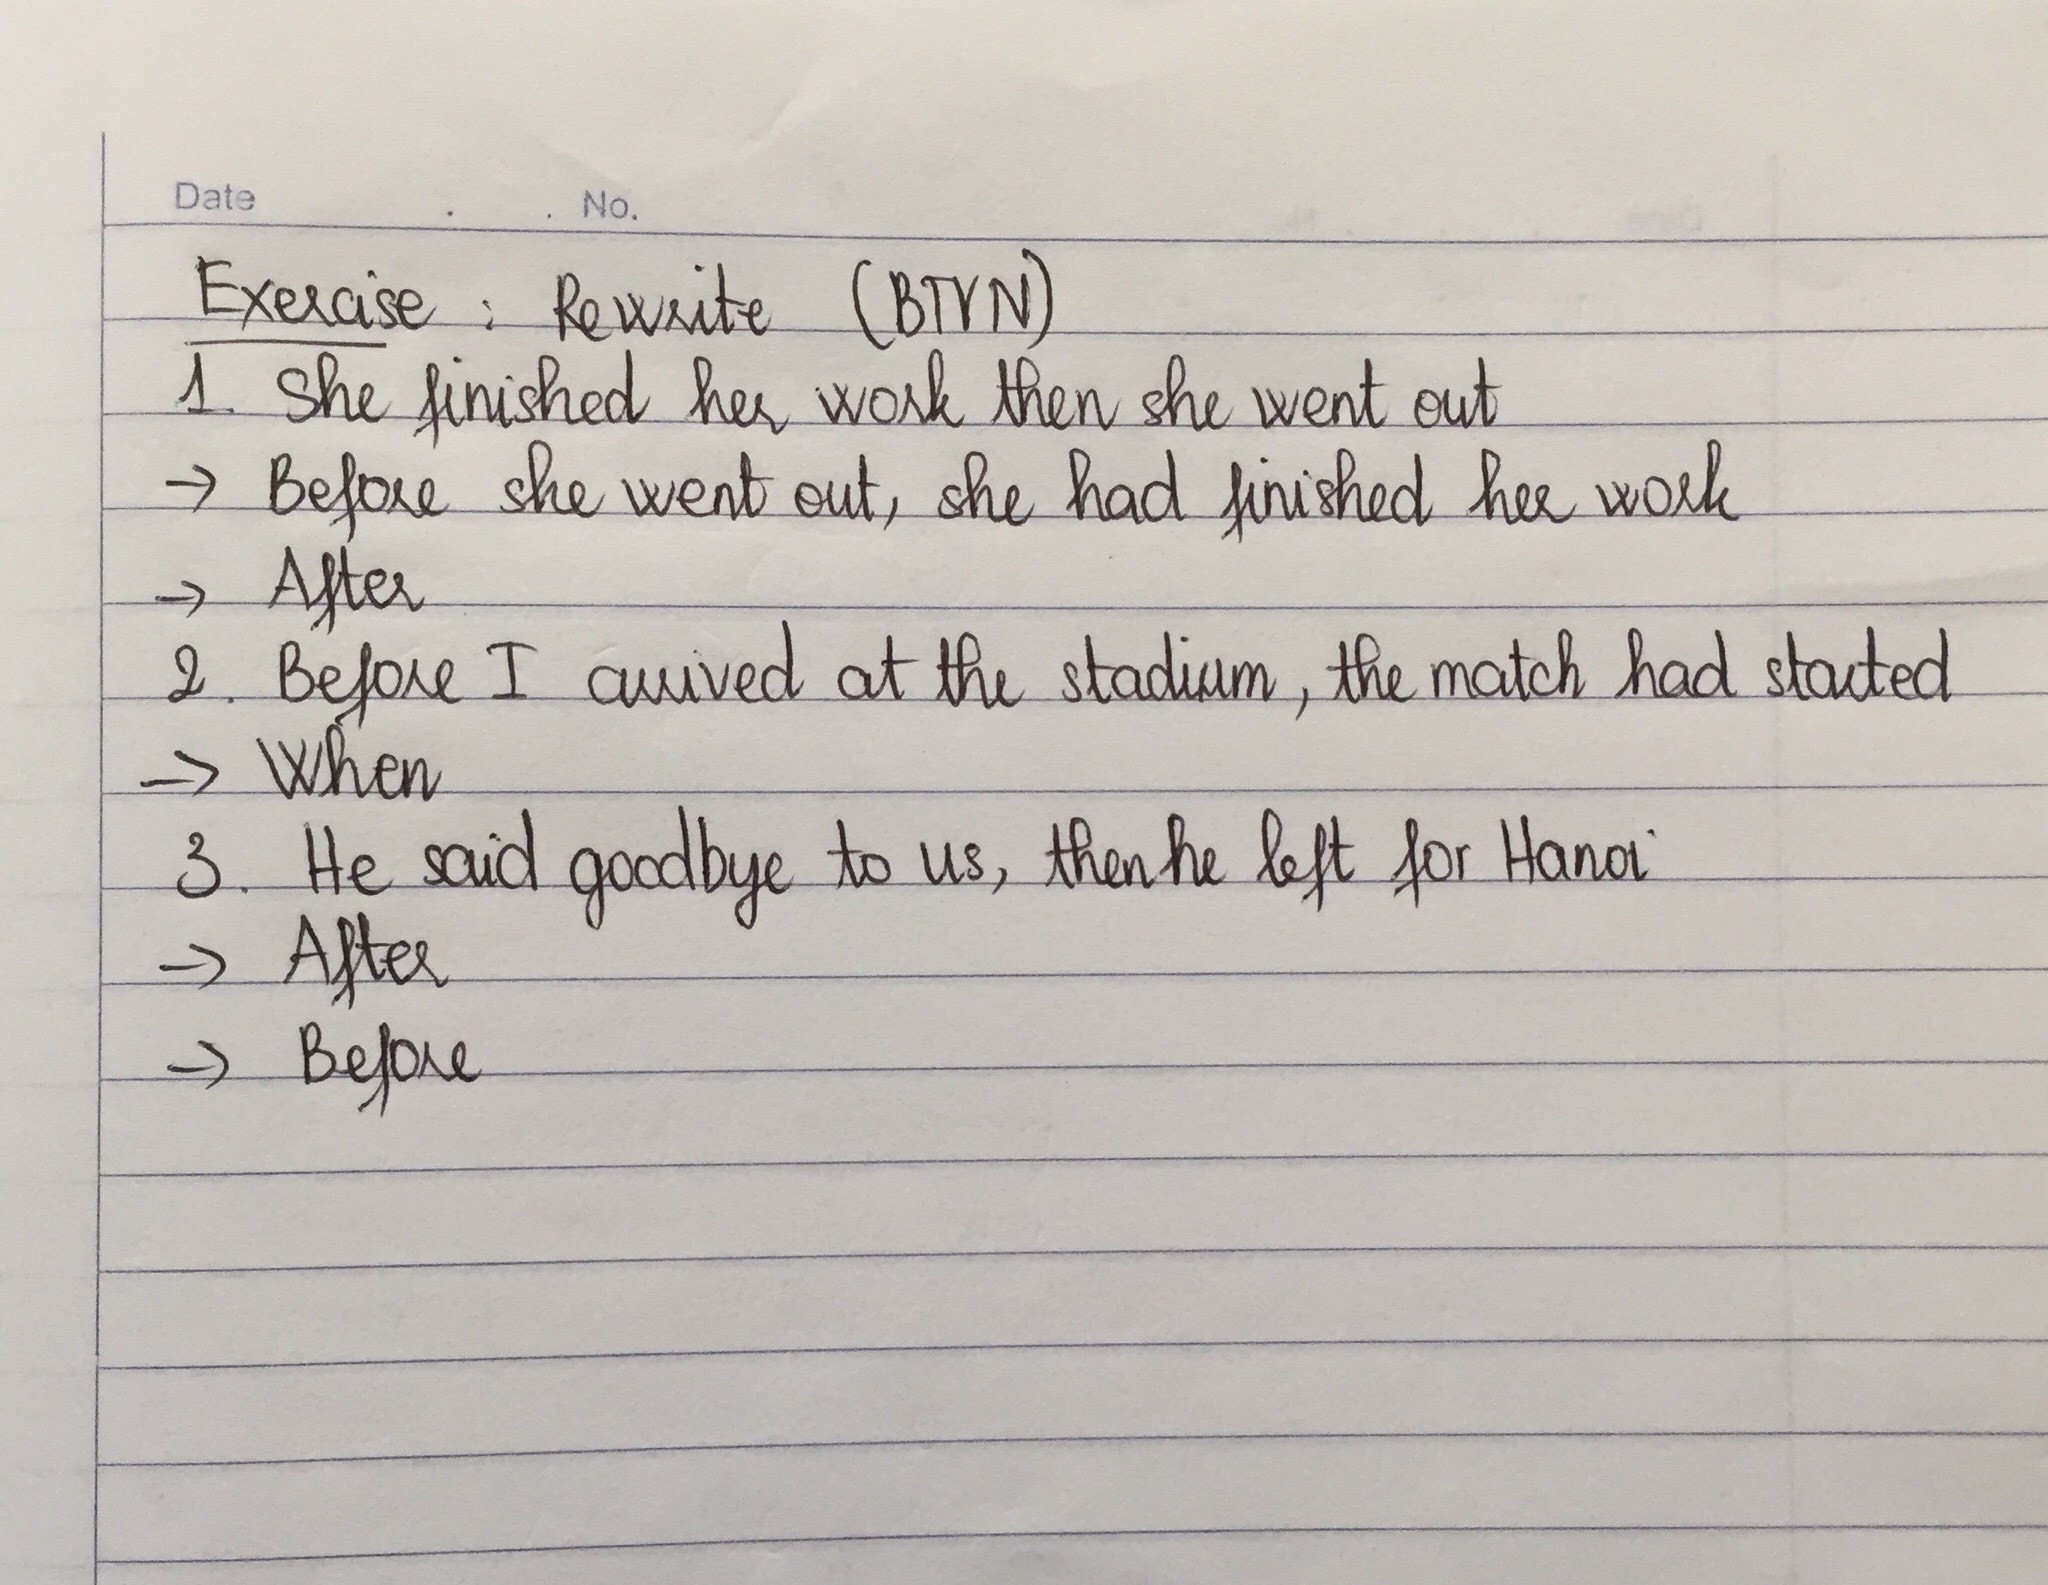 Date . . No.
Exercise : Rewrite (BTVN)
1. She finished her work then she went out
→ Before she went out, she had finished her work
→ After
2. Before I arrived at the stadium, the match had started
→ When
3. He said goodbye to us, then he left for Hanoi
→ After
→ Before